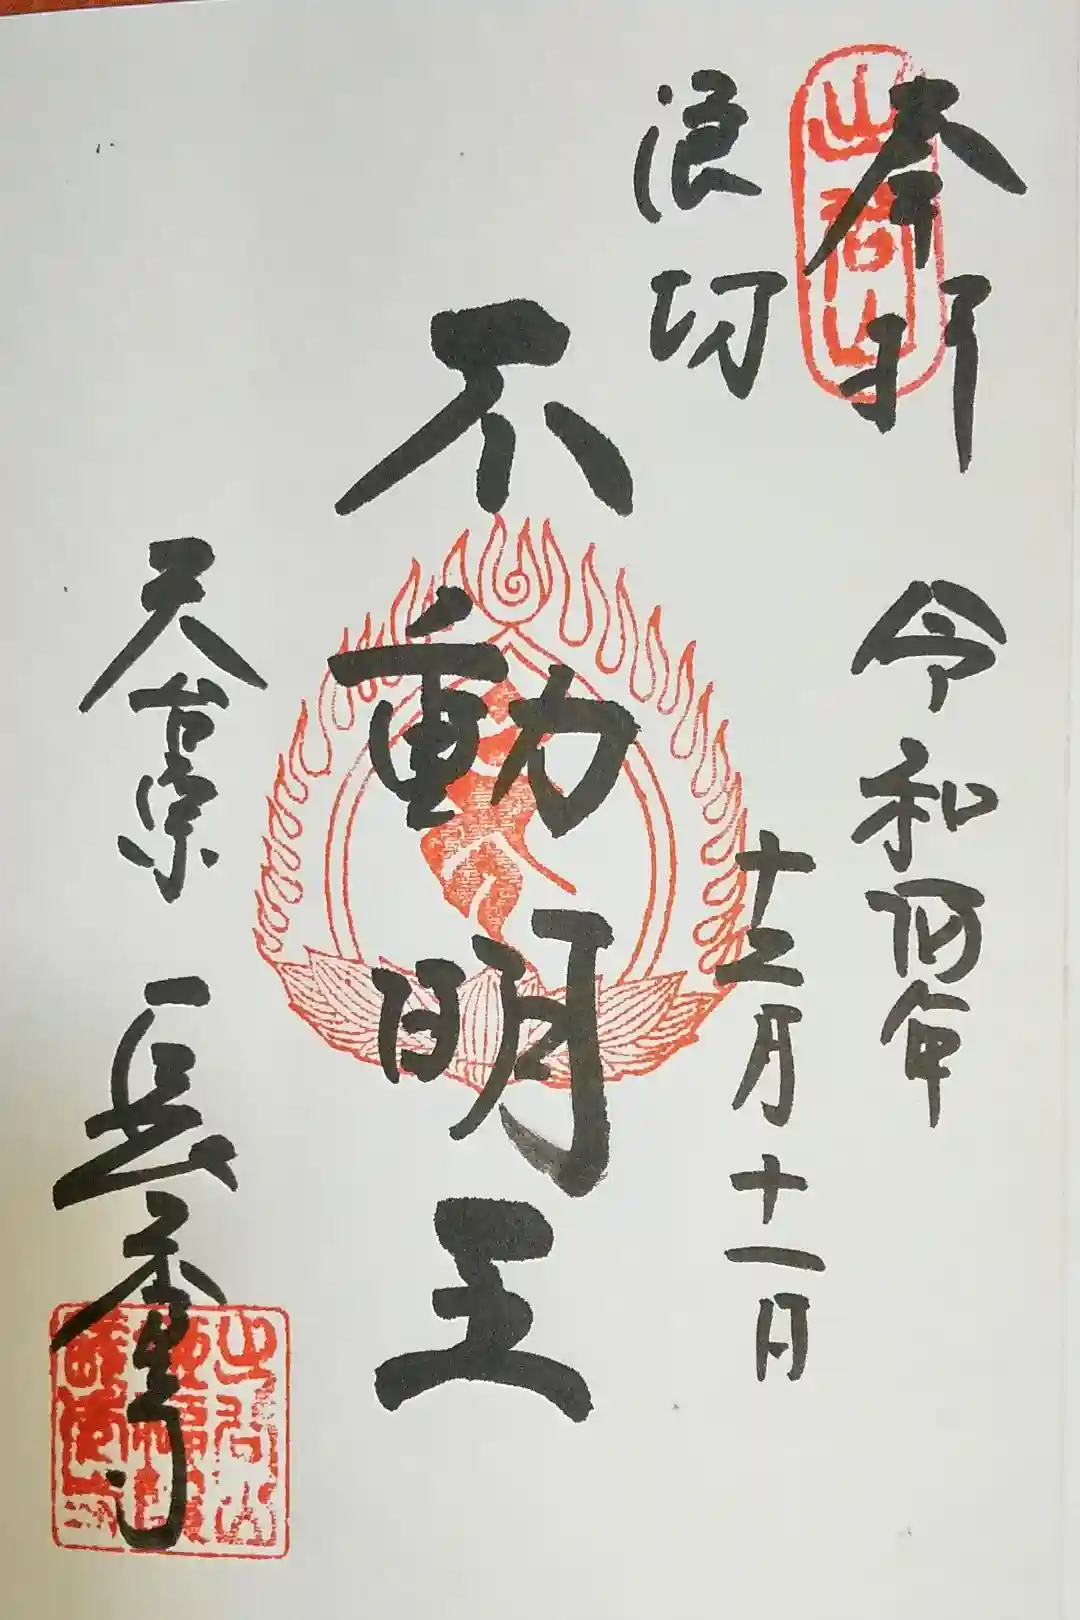 奉拝
令和四年
十二月十一日
浪切
不動明王
天台宗 長寺